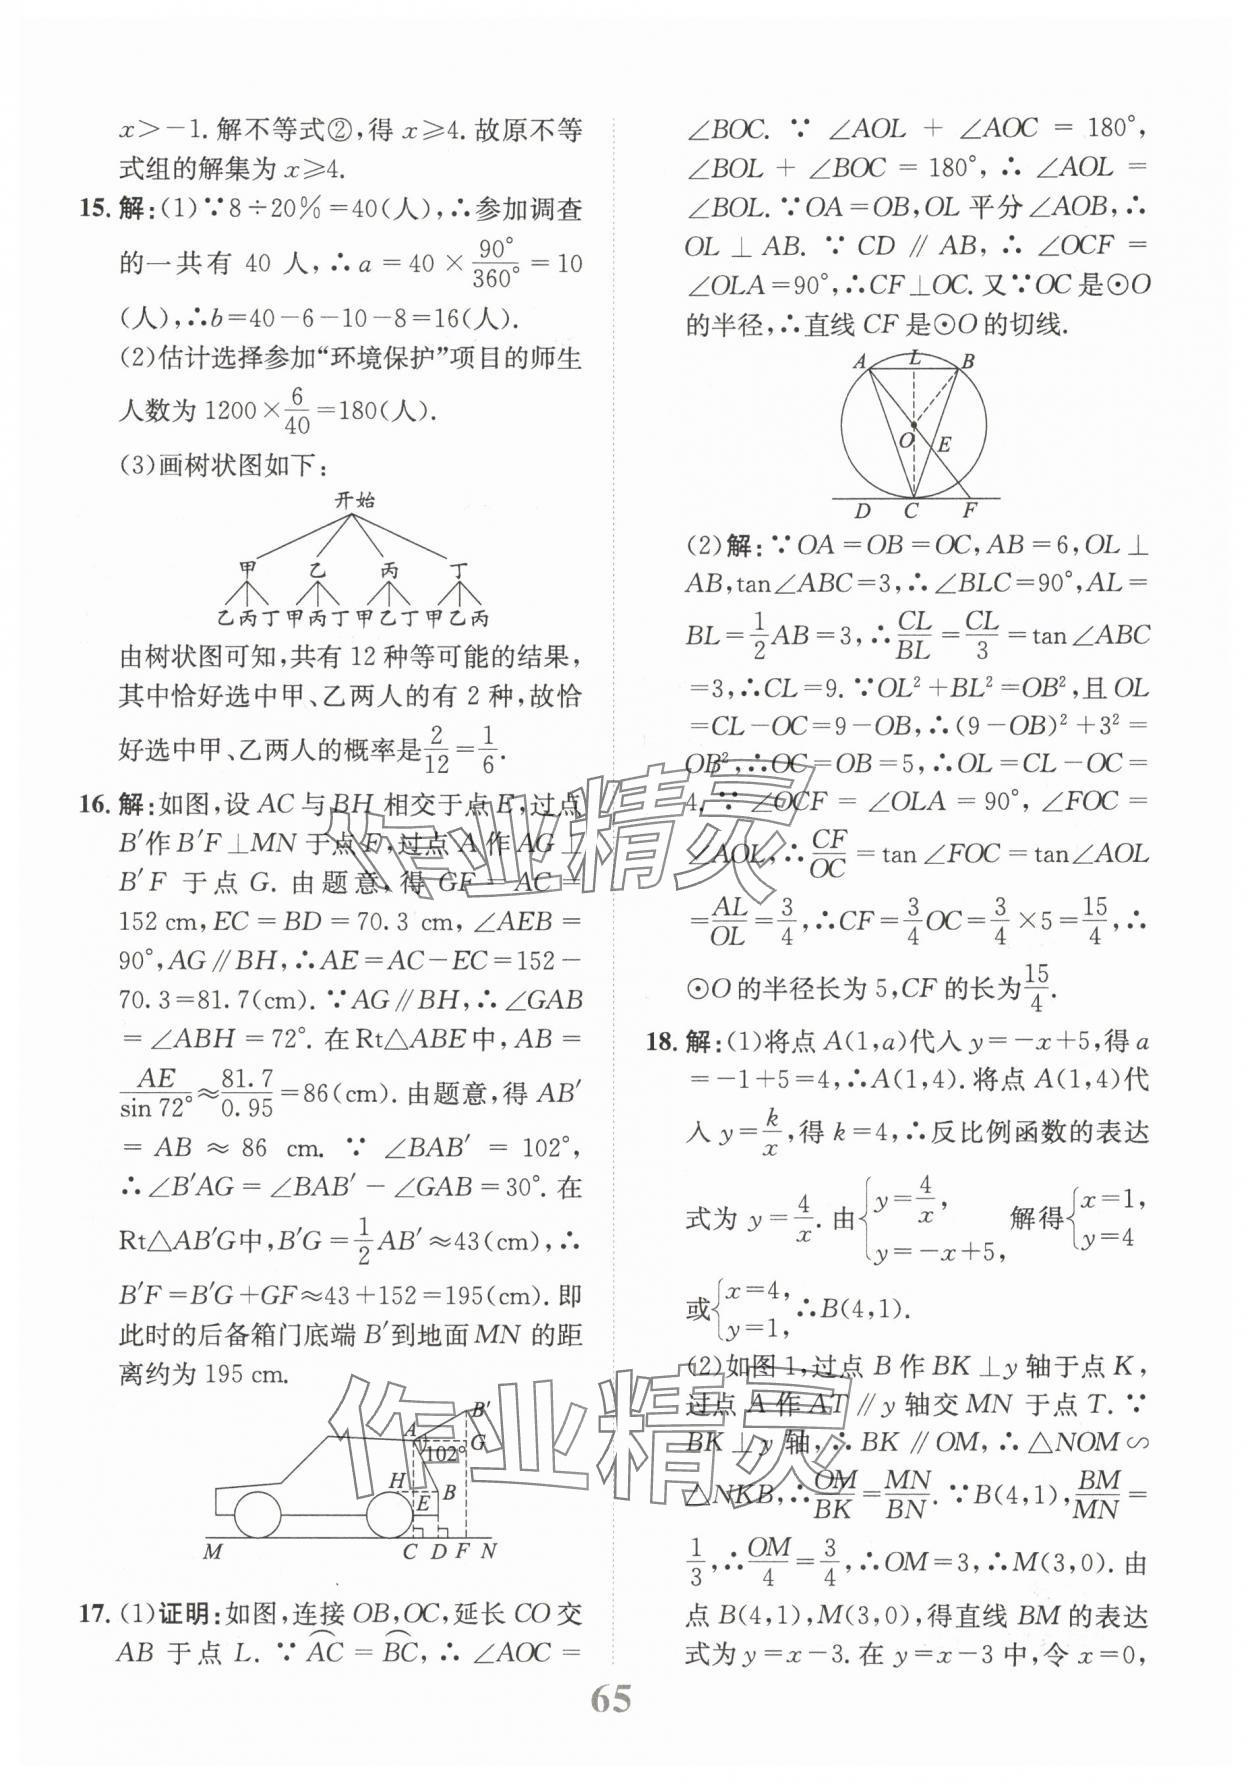 x>-1. 解不等式②,得 x≥4. 故原不等
式组的解集为 x≥4.
15. 解:(1)∵8÷20%=40(人),∴参加调查
的一共有 40 人,∴a=40×90°/360°=10
(人),∴b=40-6-10-8=16(人).
(2)估计选择参加“环境保护”项目的师生
人数为 1200×6/40=180(人).
(3)画树状图如下:
开始
甲 乙 丙 丁
乙丙丁 甲丙丁 甲乙丁 甲乙丙
由树状图可知,共有 12 种等可能的结果,
其中恰好选中甲、乙两人的有 2 种,故恰
好选中甲、乙两人的概率是2/12=1/6.
16. 解:如图,设 AC 与 BH 相交于点 E,过点
B′作 B′F⊥MN 于点 F,过点 A 作 AG⊥
B′F 于点 G. 由题意,得 GF=AC=
152 cm,EC=BD=70.3 cm,∠AEB=
90°,AG∥BH,∴AE=AC-EC=152-
70.3=81.7(cm). ∵AG∥BH,∴∠GAB
=∠ABH=72°. 在Rt△ABE中,AB=
AE/sin 72°≈81.7/0.95=86(cm). 由题意,得 AB′
=AB≈86 cm. ∵∠BAB′=102°,
∴∠B′AG=∠BAB′-∠GAB=30°. 在
Rt△AB′G中,B′G=1/2AB′≈43(cm),∴
B′F=B′G+GF≈43+152=195(cm). 即
此时的后备箱门底端 B′到地面MN 的距
离约为 195 cm.
B′
A
G
102°
H
E
B
M C D F N
17. (1)证明:如图,连接 OB,OC,延长 CO 交
AB 于点 L. ∵⌒AC=⌒BC,∴∠AOC=
∠BOC. ∵∠AOL+∠AOC=180°,
∠BOL+∠BOC=180°,∴∠AOL=
∠BOL. ∵OA=OB,OL 平分∠AOB,∴
OL⊥AB. ∵CD∥AB,∴∠OCF=
∠OLA=90°,∴CF⊥OC. 又∵OC 是⊙O
的半径,∴直线 CF 是⊙O 的切线.
A L B
O E
D C F
(2)解:∵OA=OB=OC,AB=6,OL⊥
AB,tan∠ABC=3,∴∠BLC=90°,AL=
BL=1/2AB=3,∴CL/BL=CL/3=tan∠ABC
=3,∴CL=9. ∵OL²+BL²=OB²,且 OL
=CL-OC=9-OB,∴(9-OB)²+3²=
OB²,∴OC=OB=5,∴OL=CL-OC=
4. ∵∠OCF=∠OLA=90°,∠FOC=
∠AOL,∴CF/OC=tan∠FOC=tan∠AOL
=AL/OL=3/4,∴CF=3/4OC=3/4×5=15/4,∴
⊙O 的半径长为 5,CF 的长为15/4.
18. 解:(1)将点 A(1,a)代入 y=-x+5,得 a
=-1+5=4,∴A(1,4). 将点 A(1,4)代
入 y=k/x,得 k=4,∴反比例函数的表达
式为 y=4/x. 由{y=4/x, y=-x+5, 解得{x=1, y=4
或{x=4, y=1, ∴B(4,1).
(2)如图 1,过点 B 作 BK⊥y 轴于点 K,
过点 A 作 AT∥y 轴交 MN 于点 T. ∵
BK⊥y 轴,∴BK∥OM,∴△NOM∽
△NKB,∴OM/BK=MN/BN. ∵B(4,1),BM/MN=
1/3,∴OM/4=3/4,∴OM=3,∴M(3,0). 由
点 B(4,1),M(3,0),得直线 BM 的表达
式为 y=x-3. 在 y=x-3 中,令 x=0,
65
作业精灵
作业精灵